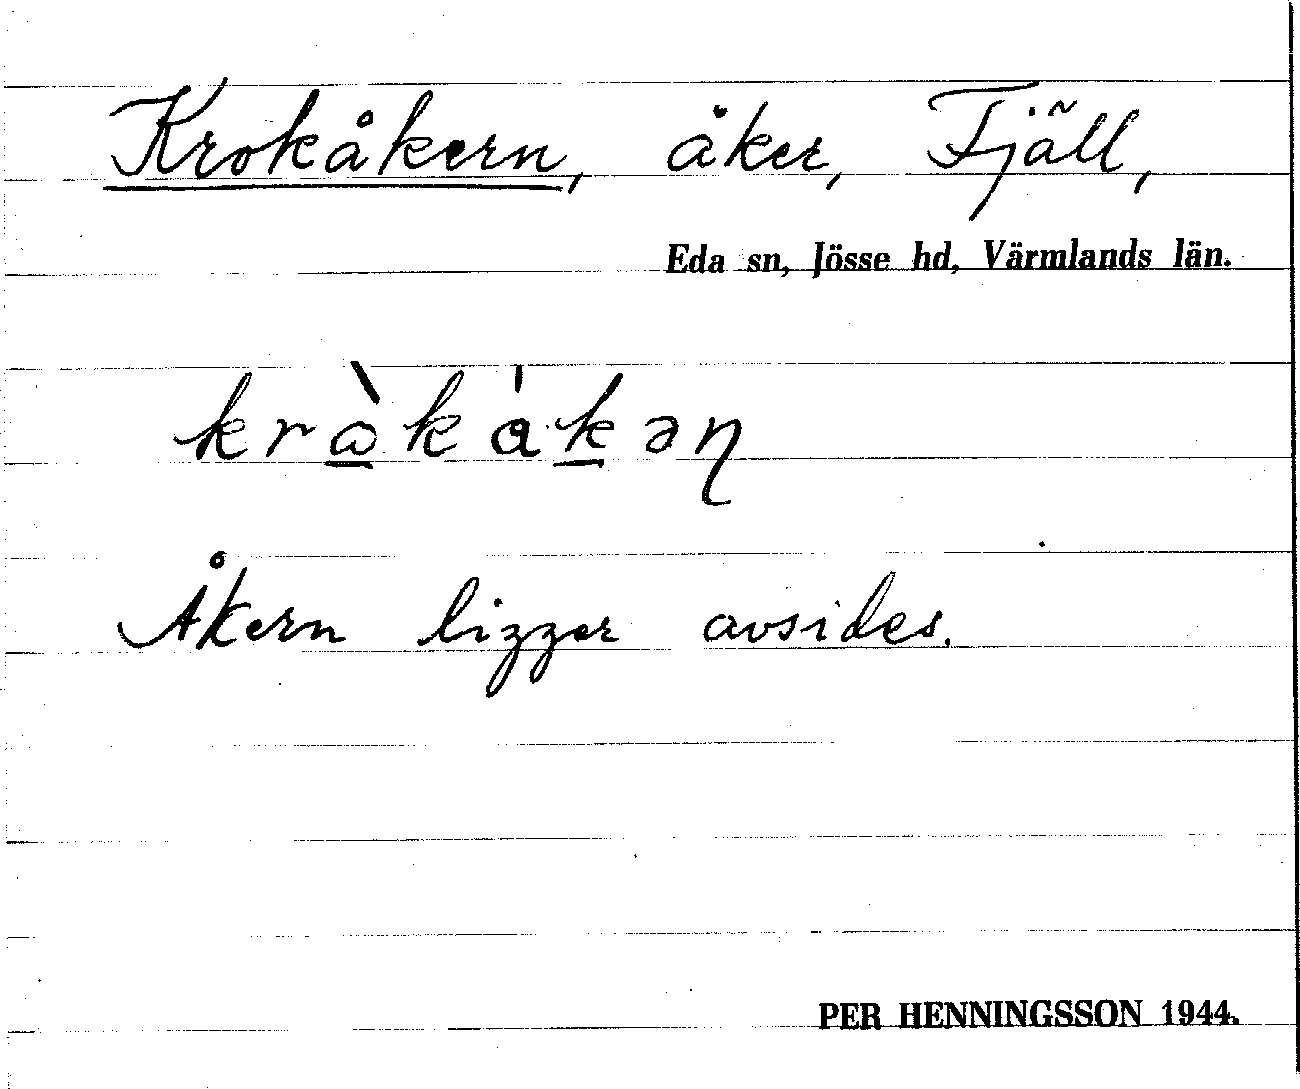 Krokåkern, åker, Fjäll,
Eda sn, Jösse hd, Värmlands län.
Åkern ligger avsides.
PER HENNINGSSON 1944.